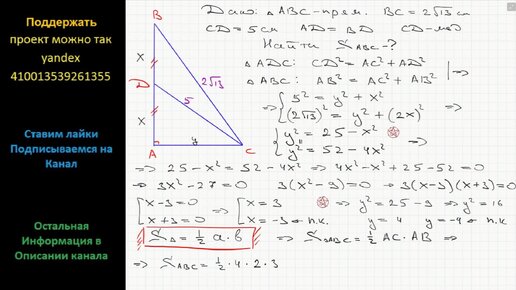 Поддержать
проект можно так
yandex
410013539261355
Ставим лайки
Подписываемся на
Канал
Остальная
Информация в
Описании канала
B
x
D
x
A
y
C
5
2√13
Дано: △ABC-прям. BC = 2√13 см
CD = 5 см AD = BD CD - мед
Найти S_ABC - ?
△ADC: CD² = AC² + AD²
△ABC: AB² = AC² + AB² | ⇒
⇒ { 5² = y² + x²
(2√13)² = y² + (2x)²
{ y² = 25 - x²
y² = 52 - 4x²
⇒ 25 - x² = 52 - 4x² ⇒ 4x² - x² + 25 - 52 = 0
⇒ 3x² - 27 = 0 3(x² - 9) = 0 ⇒ 3(x-3)(x+3) = 0
[ x - 3 = 0 ⇒ [ x = 3 ⇒ y² = 25 - 9 ⇒ y² = 16
x + 3 = 0 x = -3 п.к. y = 4 y = -4 п.к.
S△ = ½ a·b ⇒ S△ABC = ½ AC · AB ⇒
⇒ S_ABC = ½ · 4 · 2 · 3